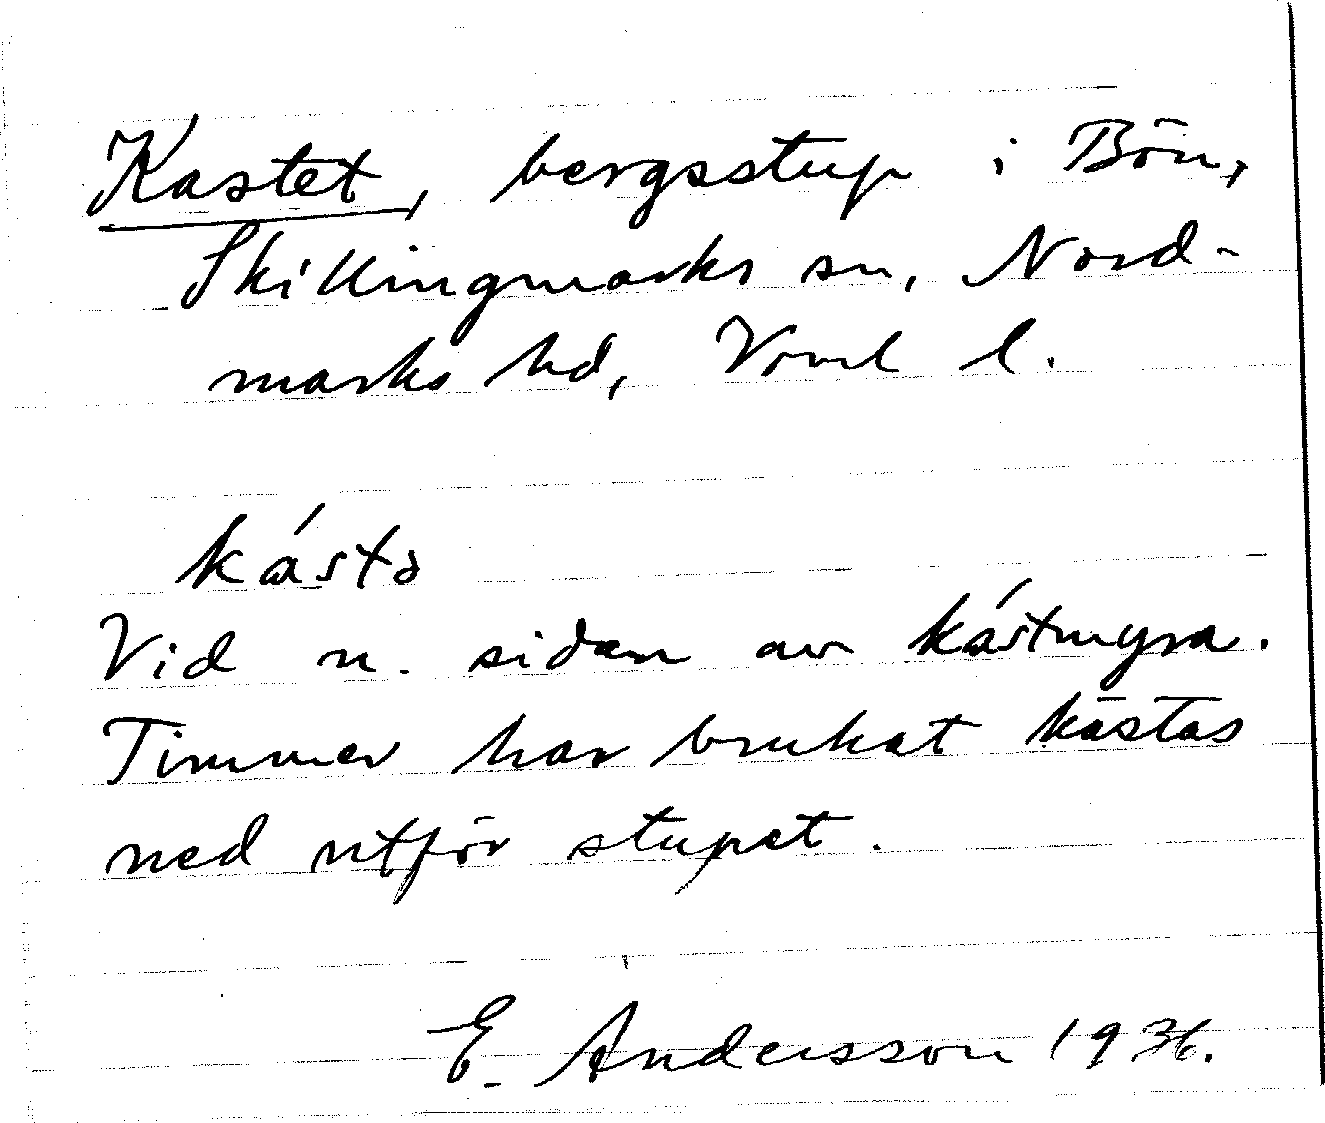 Kastet, bergsstup i Bön,
Skillingmarks sn, Nord-
marks hd, Vrml l.
kásta
Vid n. sidan av kástmyra.
Timmer har brukat kastas
ned utför stupet.
E. Andersson 1936.